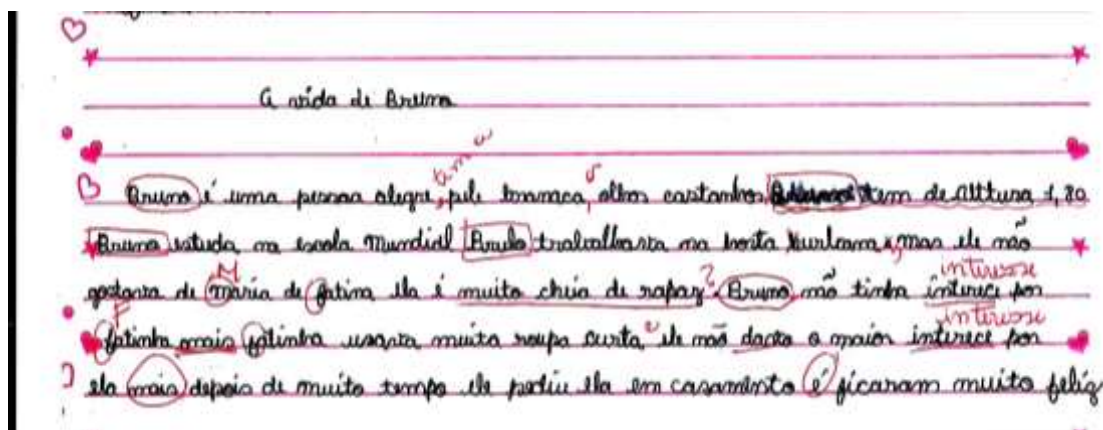 A vida de Bruno
tem a
Bruno é uma pessoa alegre, pele branca, olhos castanhos tem de alttura 1,80
Bruno estuda na escola mundial trabalhava na horta mas ele não
M interesse
gostava de maria de fatina ela é muito cheia de rapaz? Bruno não tinha interece por
F interesse
fatinha mais fatinha usava muita roupa curta e ele não o maior interece por
ela mais depois de muito tempo ele pediu ela em casaminto é ficaram muito feliz